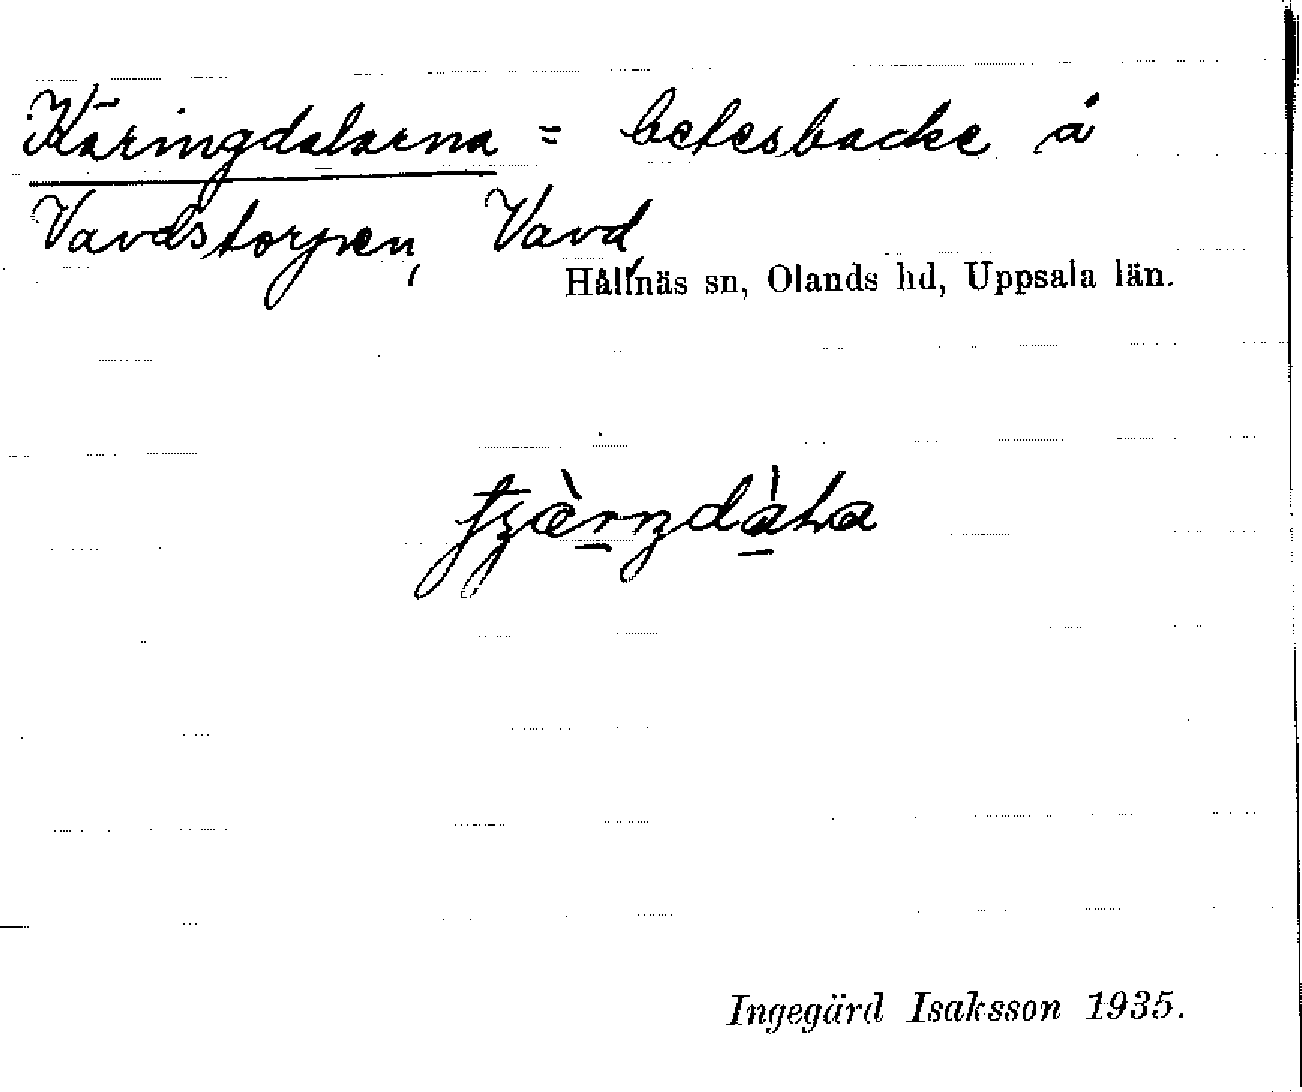 Käringdalarna = betesbacke å
Vavdstorpen, Vavd,
Hållnäs sn, Olands hd, Uppsala län.
Ingegärd Isaksson 1935.